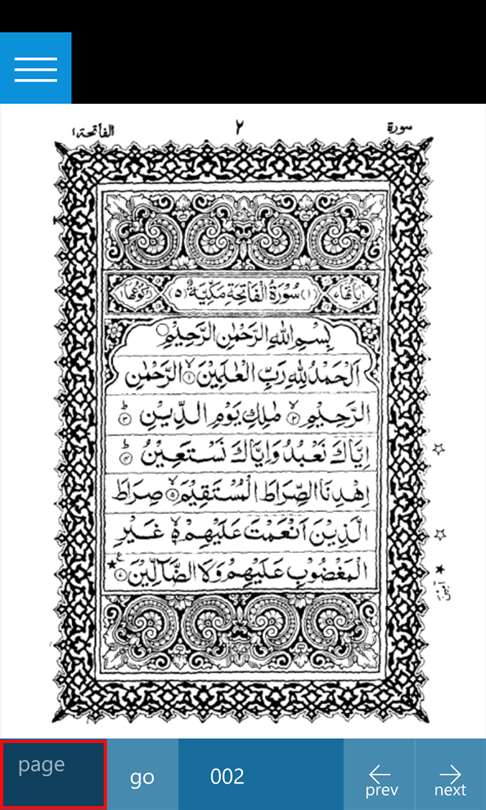 سورة ٢ الفاتحة ١
اٰیاتھا (١) سُوْرَةُ الْفَاتِحَةِ مَكِّيَّةٌ (٥) رکوعھا
بِسْمِ اللّٰهِ الرَّحْمٰنِ الرَّحِيْمِ
اَلْحَمْدُ لِلّٰهِ رَبِّ الْعٰلَمِيْنَ ۙ﴿١﴾ الرَّحْمٰنِ
الرَّحِيْمِ ۙ﴿٢﴾ مٰلِكِ يَوْمِ الدِّيْنِ ؕ﴿٣﴾
اِيَّاكَ نَعْبُدُ وَاِيَّاكَ نَسْتَعِيْنُ ؕ﴿٤﴾
اِهْدِنَا الصِّرَاطَ الْمُسْتَقِيْمَ ۙ﴿٥﴾ صِرَاطَ
الَّذِيْنَ اَنْعَمْتَ عَلَيْهِمْ ۙ۬ غَيْرِ
الْمَغْضُوْبِ عَلَيْهِمْ وَلَا الضَّآلِّيْنَ
page go 002 prev next